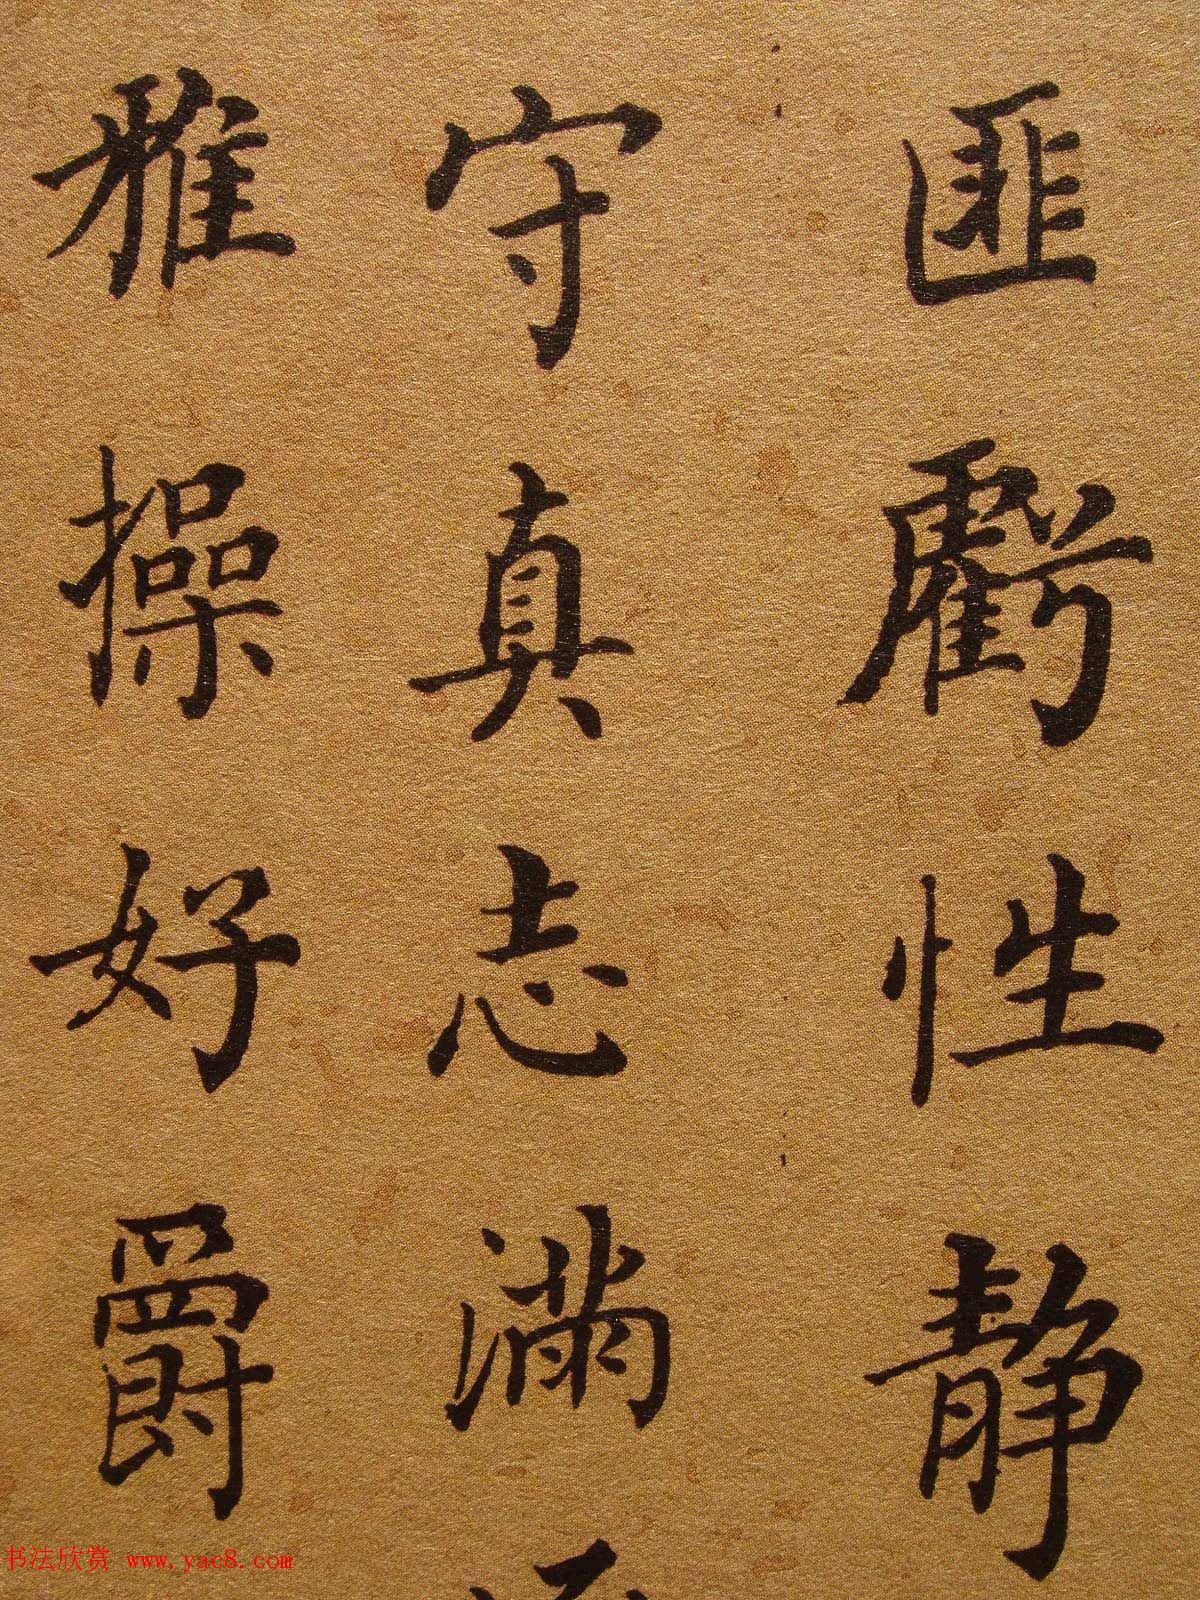 匪虧性静
守真志滿
雅操好爵
书法欣赏 www.yac8.com